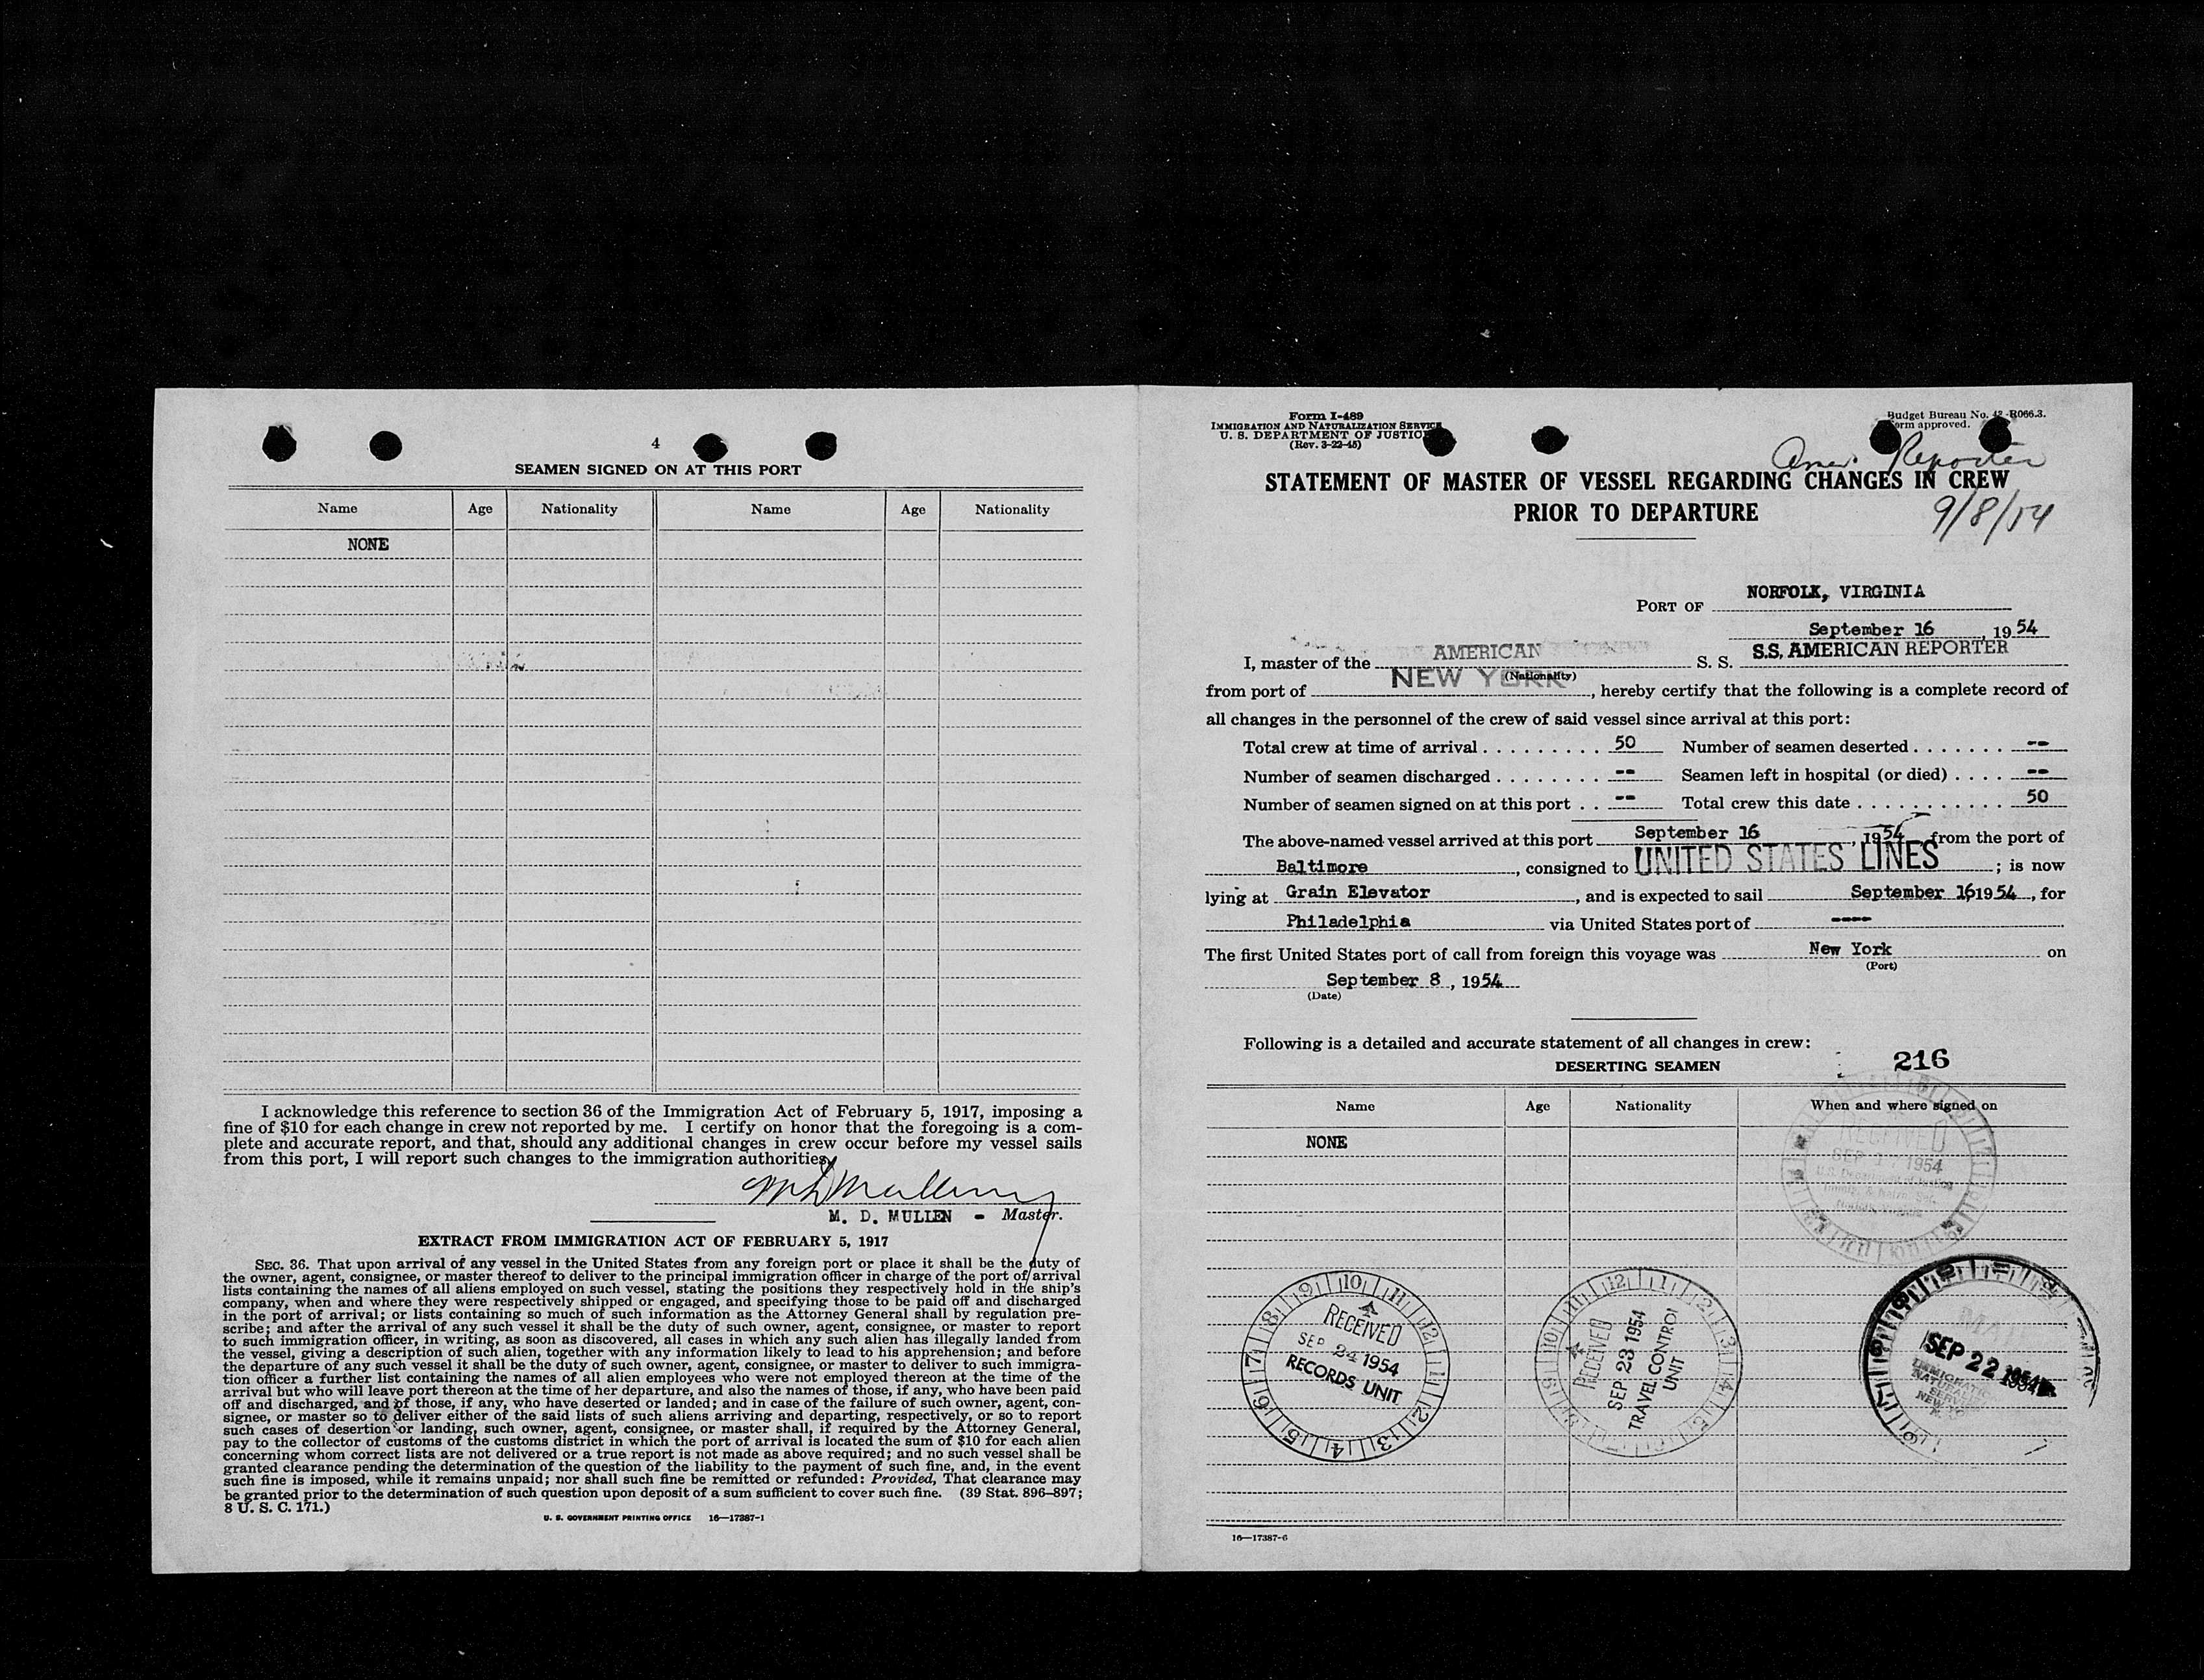 4
SEAMEN SIGNED ON AT THIS PORT
Name Age Nationality Name Age Nationality
NONE
I acknowledge this reference to section 36 of the Immigration Act of February 5, 1917, imposing a
fine of $10 for each change in crew not reported by me. I certify on honor that the foregoing is a com-
plete and accurate report, and that, should any additional changes in crew occur before my vessel sails
from this port, I will report such changes to the immigration authorities.
M D Mullen
M. D. MULLEN - Master.
EXTRACT FROM IMMIGRATION ACT OF FEBRUARY 5, 1917
SEC. 36. That upon arrival of any vessel in the United States from any foreign port or place it shall be the duty of
the owner, agent, consignee, or master thereof to deliver to the principal immigration officer in charge of the port of arrival
lists containing the names of all aliens employed on such vessel, stating the positions they respectively hold in the ship's
company, when and where they were respectively shipped or engaged, and specifying those to be paid off and discharged
in the port of arrival; or lists containing so much of such information as the Attorney General shall by regulation pre-
scribe; and after the arrival of any such vessel it shall be the duty of such owner, agent, consignee, or master to report
to such immigration officer, in writing, as soon as discovered, all cases in which any such alien has illegally landed from
the vessel, giving a description of such alien, together with any information likely to lead to his apprehension; and before
the departure of any such vessel it shall be the duty of such owner, agent, consignee, or master to deliver to such immigra-
tion officer a further list containing the names of all alien employees who were not employed thereon at the time of the
arrival but who will leave port thereon at the time of her departure, and also the names of those, if any, who have been paid
off and discharged, and of those, if any, who have deserted or landed; and in case of the failure of such owner, agent, con-
signee, or master so to deliver either of the said lists of such aliens arriving and departing, respectively, or so to report
such cases of desertion or landing, such owner, agent, consignee, or master shall, if required by the Attorney General,
pay to the collector of customs of the customs district in which the port of arrival is located the sum of $10 for each alien
concerning whom correct lists are not delivered or a true report is not made as above required; and no such vessel shall be
granted clearance pending the determination of the question of the liability to the payment of such fine, and, in the event
such fine is imposed, while it remains unpaid; nor shall such fine be remitted or refunded: Provided, That clearance may
be granted prior to the determination of such question upon deposit of a sum sufficient to cover such fine. (39 Stat. 896–897;
8 U. S. C. 171.)
U. S. GOVERNMENT PRINTING OFFICE 16—17387-1
Form I-489
IMMIGRATION AND NATURALIZATION SERVICE
U. S. DEPARTMENT OF JUSTICE
(Rev. 3-22-45)
Budget Bureau No. 43-R066.3.
Form approved.
Amer. Reporter
STATEMENT OF MASTER OF VESSEL REGARDING CHANGES IN CREW
PRIOR TO DEPARTURE
9/8/54
PORT OF NORFOLK, VIRGINIA
September 16, 1954
I, master of the AMERICAN S. S. S.S. AMERICAN REPORTER
(Nationality)
from port of NEW YORK, hereby certify that the following is a complete record of
all changes in the personnel of the crew of said vessel since arrival at this port:
Total crew at time of arrival . . . . . . . . . 50 Number of seamen deserted . . . . . . . --
Number of seamen discharged . . . . . . . . -- Seamen left in hospital (or died) . . . . --
Number of seamen signed on at this port . . -- Total crew this date . . . . . . . . . . . 50
The above-named vessel arrived at this port September 16, 1954 from the port of
Baltimore, consigned to UNITED STATES LINES; is now
lying at Grain Elevator, and is expected to sail September 16, 1954, for
Philadelphia via United States port of ----
The first United States port of call from foreign this voyage was New York on
(Port)
September 8, 1954
(Date)
Following is a detailed and accurate statement of all changes in crew:
DESERTING SEAMEN
216
Name Age Nationality When and where signed on
NONE
RECEIVED
SEP 17 1954
U.S. Department of Justice
RECEIVED
SEP 24 1954
RECORDS UNIT
RECEIVED
SEP 23 1954
TRAVEL CONTROL
UNIT
MAIL
SEP 22 1954
16—17387-6